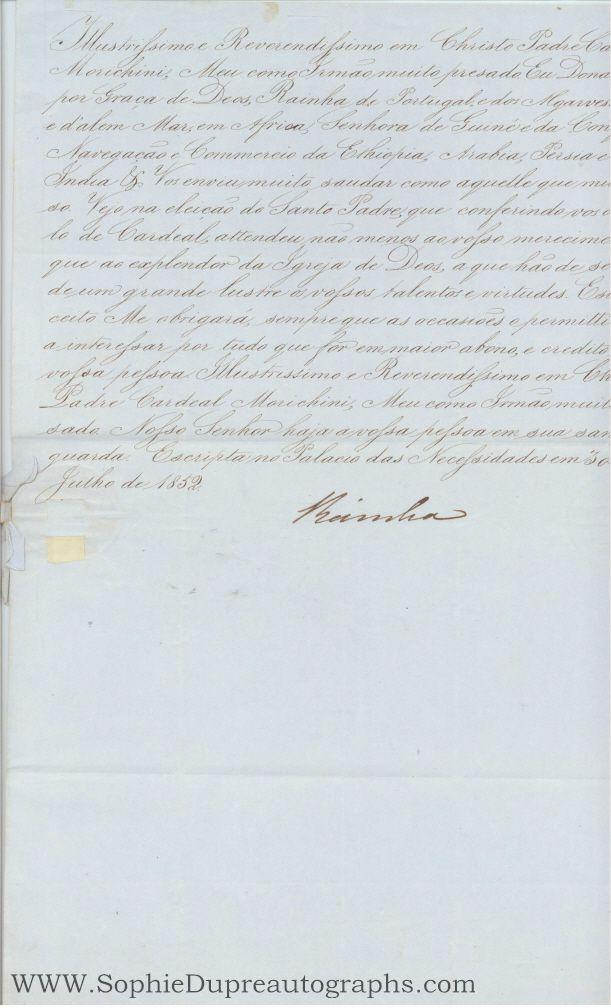 Illustrissimo e Reverendissimo em Christo Padre Ca
Morichini, Meu como Irmão muito presado Eu Dona
por Graça de Deos, Rainha de Portugal, e dos Algarves
e d'alem Mar, em Africa, Senhora de Guiné e da Con
Navegação e Commercio da Ethiopia, Arabia, Persia e
India &ª Vos enviu muito saudar como aquelle que mu
so. Vejo na eleição do Santo Padre, que conferindo vos o
lo de Cardeal, attendeu não menos ao vosso merecime
que ao explendor da Igreja de Deos, a que hão de se
de um grande lustre os vossos talentos e virtudes. Es
ceito Me obrigará, sempre que as occasiões o permitt
a interessar por tudo que fôr em maior abono, e credito
vossa pessoa Illustrissimo e Reverendissimo em Ch
Padre Cardeal Morichini, Meu como Irmão muit
sado Nosso Senhor haja a vossa pessoa em sua san
guarda. Escripta no Palacio das Necessidades em 30
Julho de 1852.
Rainha
WWW.SophieDupreautographs.com